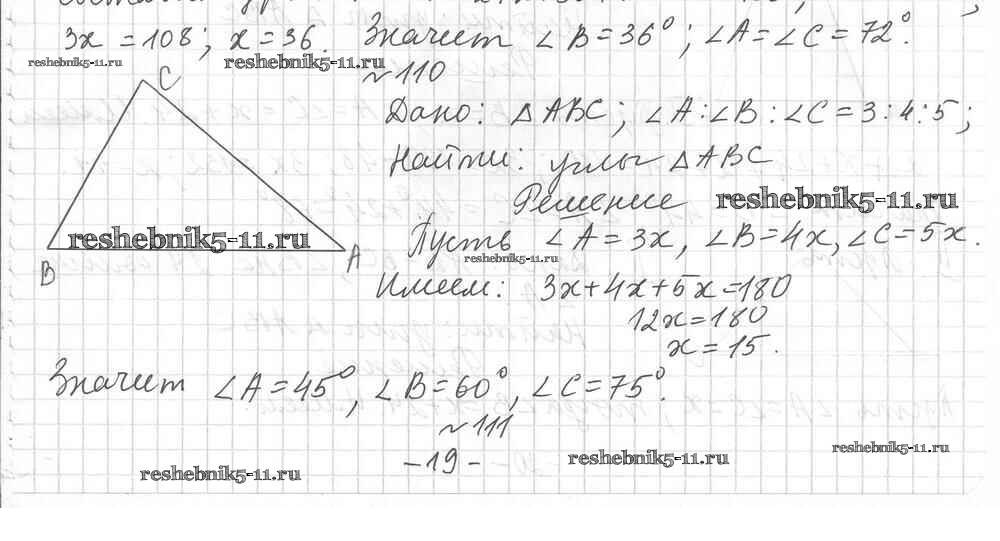 3x = 108; x = 36. Значит ∠B = 36°; ∠A = ∠C = 72°.
reshebnik5-11.ru reshebnik5-11.ru
~110
C
Дано: △ABC; ∠A:∠B:∠C = 3:4:5;
Найти: углы △ABC
Решение reshebnik5-11.ru
reshebnik5-11.ru Пусть ∠A = 3x, ∠B = 4x, ∠C = 5x.
B A reshebnik5-11.ru
Имеем: 3x + 4x + 5x = 180
12x = 180
x = 15.
Значит ∠A = 45°, ∠B = 60°, ∠C = 75°.
~111
-19-
reshebnik5-11.ru reshebnik5-11.ru reshebnik5-11.ru